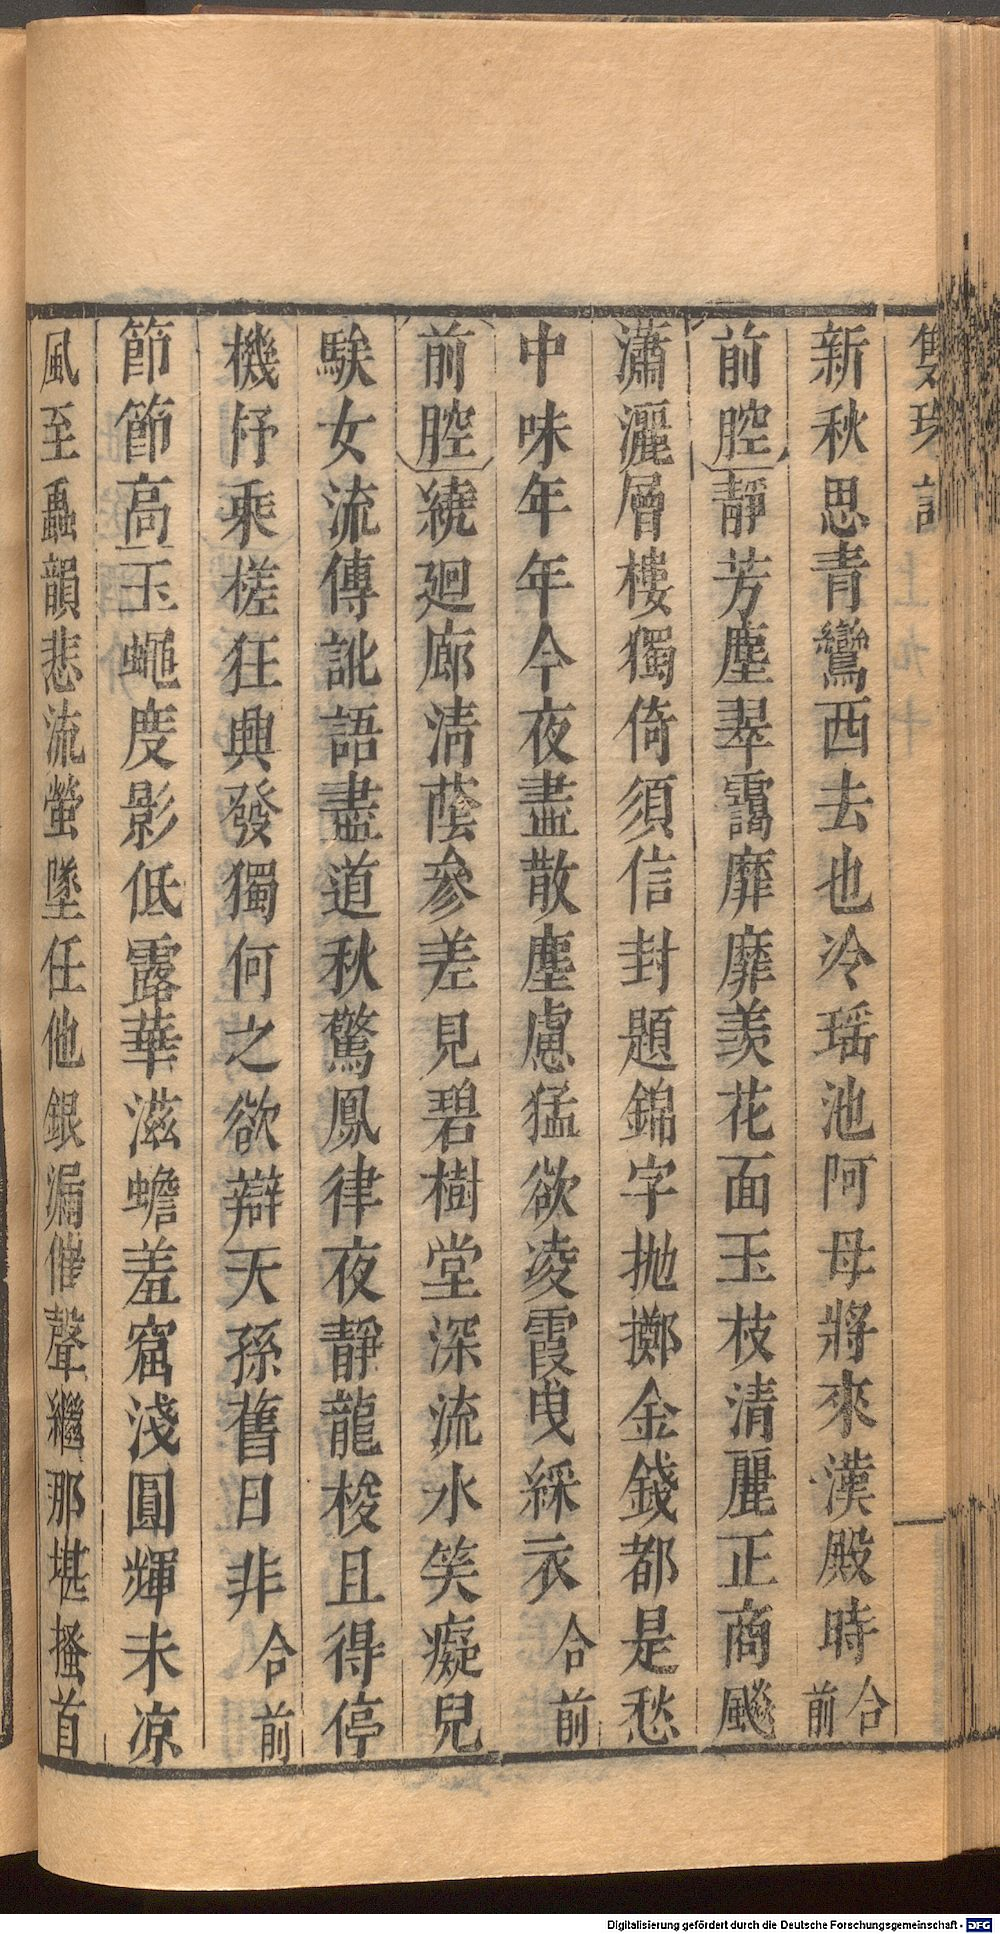 雙珠記
新秋思青鸞西去也冷瑶池阿母將來漢殿時合前
前腔靜芳塵翠靄靡靡羨花面玉枝清麗正商飈
瀟灑層樓獨倚須信封題錦字抛擲金錢都是愁
中味年年今夜盡散塵慮猛欲凌霞曳綵衣合前
前腔繞廻廊清蔭參差見碧樹堂深流水笑癡兒
騃女流傳訛語盡道秋驚鳳律夜靜龍梭且得停
機杼乘槎狂興發獨何之欲辯天孫舊日非合前
節節高玉蠅度影低露華滋蟾羞窟淺圓輝未凉
風至蛩韻悲流螢墜任他銀漏催聲繼那堪搔首
Digitalisierung gefördert durch die Deutsche Forschungsgemeinschaft - DFG